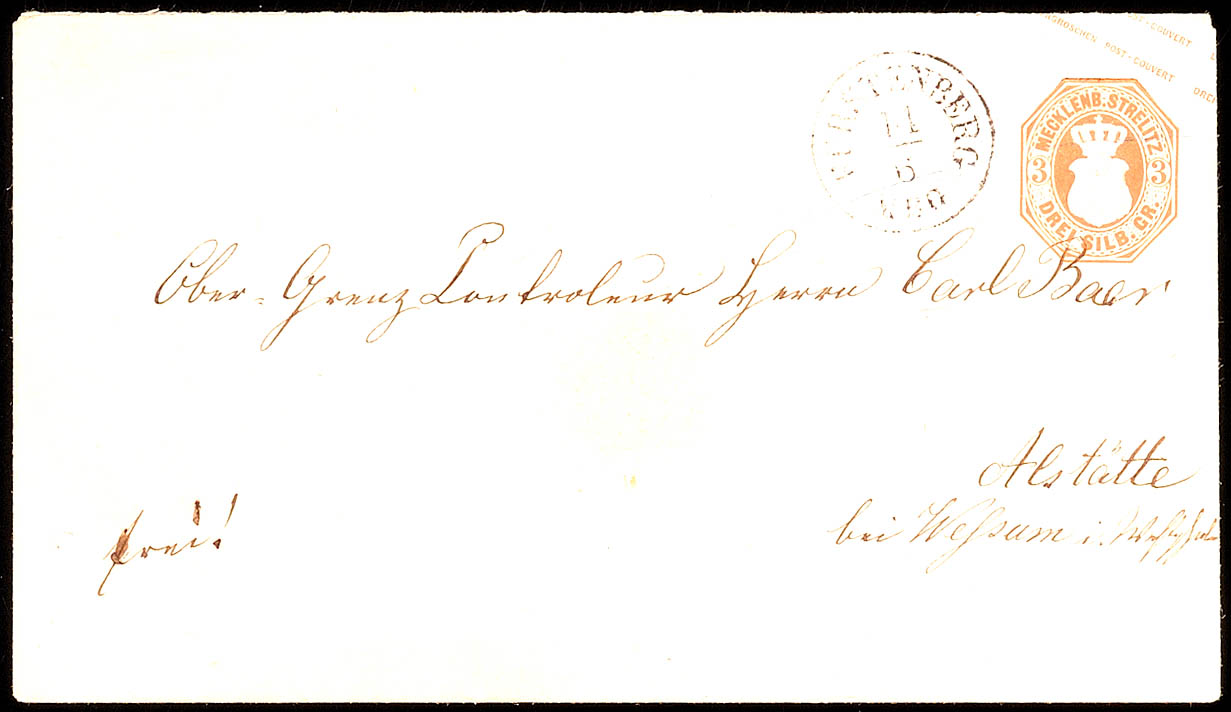 GROSCHEN POST-COUVERT DREI
POST-COUVERT
MECKLENB. STRELITZ
3 3
DREI SILB. GR.
FÜRSTENBERG
11
6
Ober-Grenz Controleur Herrn Carl Baer
Alstätte
bei Weſsum i.
frei!